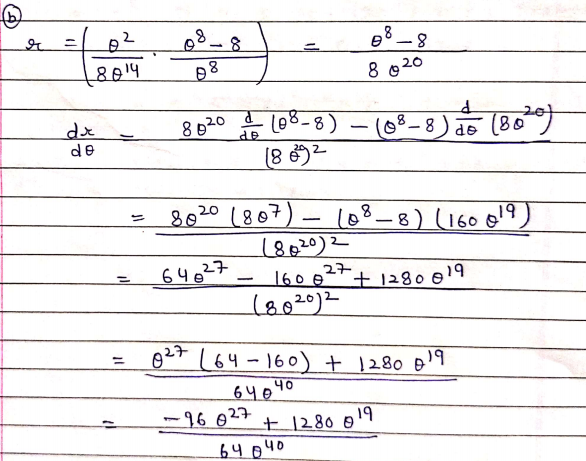 (b)
r = (θ²/8θ¹⁴ · θ⁸-8/θ⁸) = θ⁸-8/8θ²⁰
dr/dθ = 8θ²⁰ d/dθ (θ⁸-8) - (θ⁸-8) d/dθ (8θ²⁰)/(8θ²⁰)²
= 8θ²⁰ (8θ⁷) - (θ⁸-8) (160θ¹⁹)/(8θ²⁰)²
= 64θ²⁷ - 160θ²⁷ + 1280θ¹⁹/(8θ²⁰)²
= θ²⁷ (64-160) + 1280θ¹⁹/64θ⁴⁰
= -96θ²⁷ + 1280θ¹⁹/64θ⁴⁰